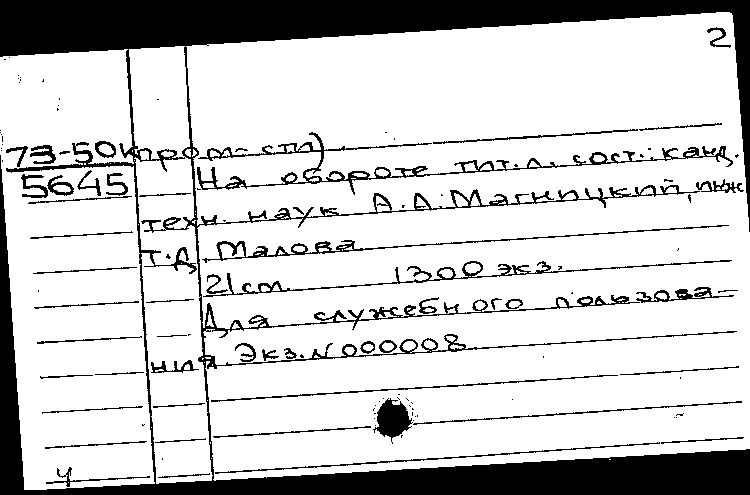 2
73-50к пром-сти)
5645 На обороте тит.л. сост.: канд.
техн. наук А.А. Магницкий, инж.
Т.Д. Малова
21 cm 1300 экз.
Для служебного пользова-
ния. Экз. N 000008
4